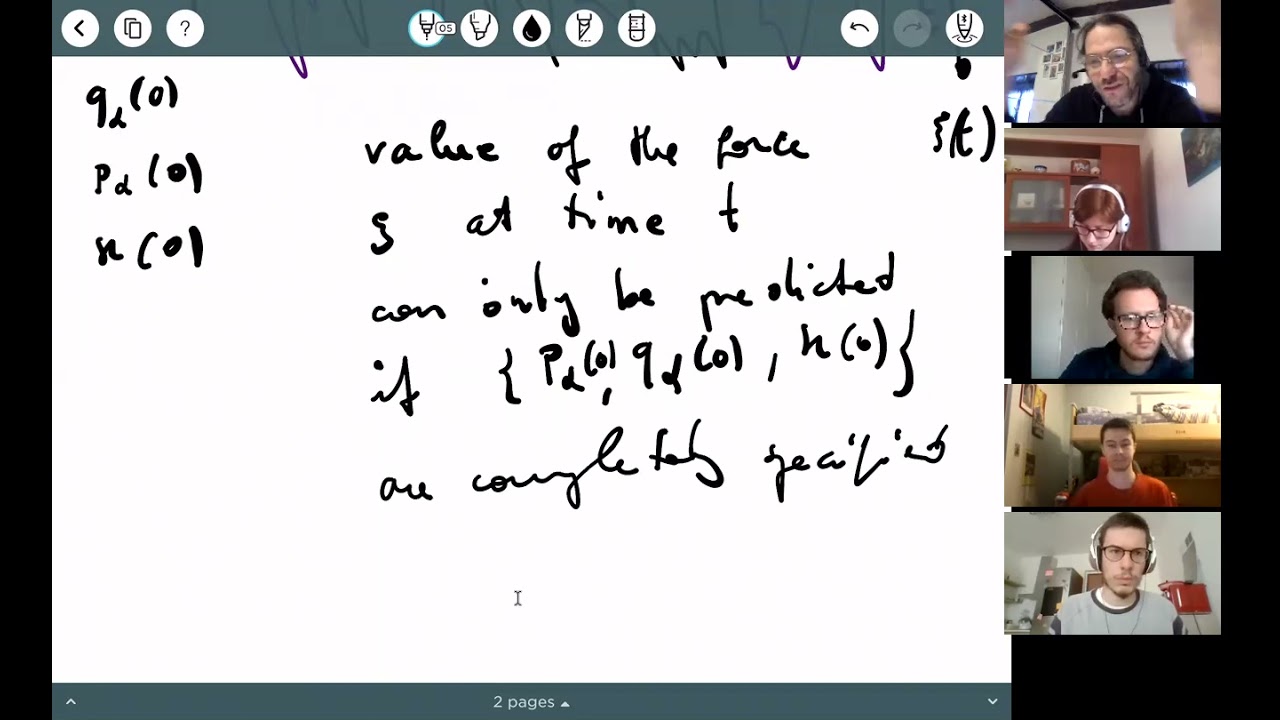 ?
05
q_α(0)
p_α(0)
x(0)
ξ(t)
value of the force
ξ at time t
can only be predicted
if { p_α(0), q_α(0), x(0) }
are completely specified
2 pages